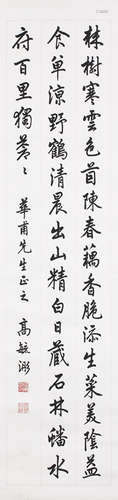 棘樹寒雲色茵陳春藕香脆添生菜美陰益
食單涼野鶴清晨出山精白日藏石林蟠水
府百里獨蒼〻
華甫先生正之 高毓浵